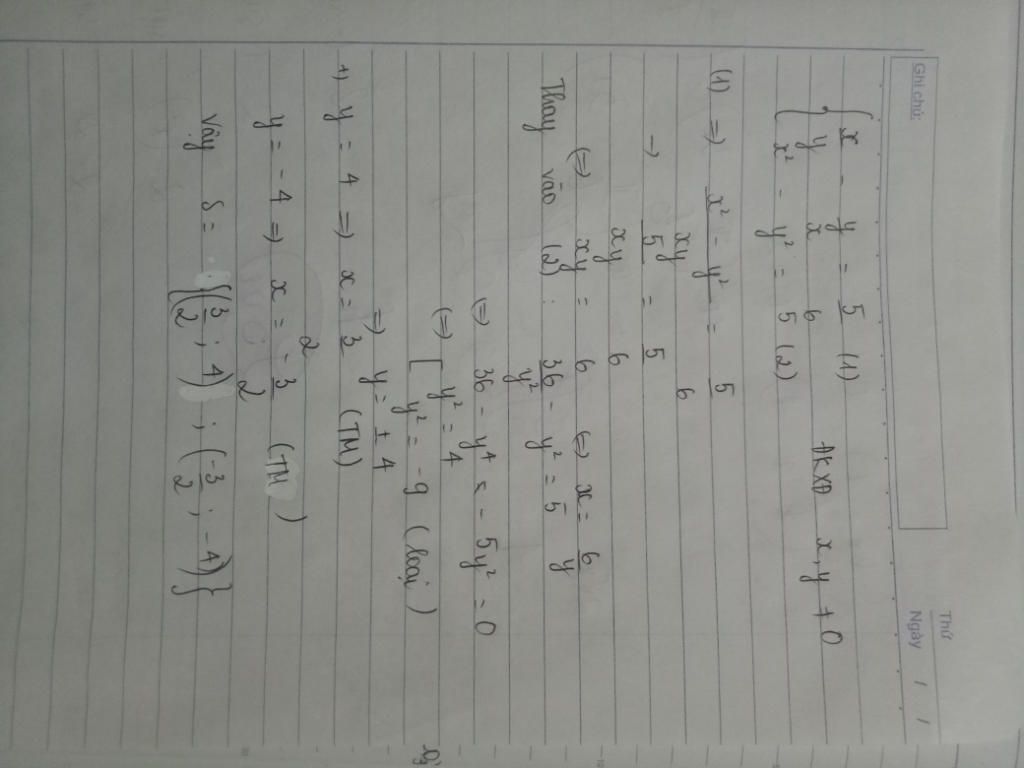 Ghi chú:
Thứ
Ngày / /
{ x/y - y/x = 5/6 (1)
x² - y² = 5 (2)
ĐKXĐ x, y ≠ 0
(1) => (x² - y²)/(xy) = 5/6
→ 5/(xy) = 5/6
(=) xy = 6 (=) x = 6/y
Thay vào (2) : 36/y² - y² = 5
(=) 36 - y⁴ - 5y² = 0
(=) [ y² = 4
y² = -9 (loại)
=> y = ± 4
+) y = 4 => x = 3/2 (TM)
y = -4 => x = -3/2 (TM)
Vậy S = {(3/2 ; 4) ; (-3/2 ; -4)}